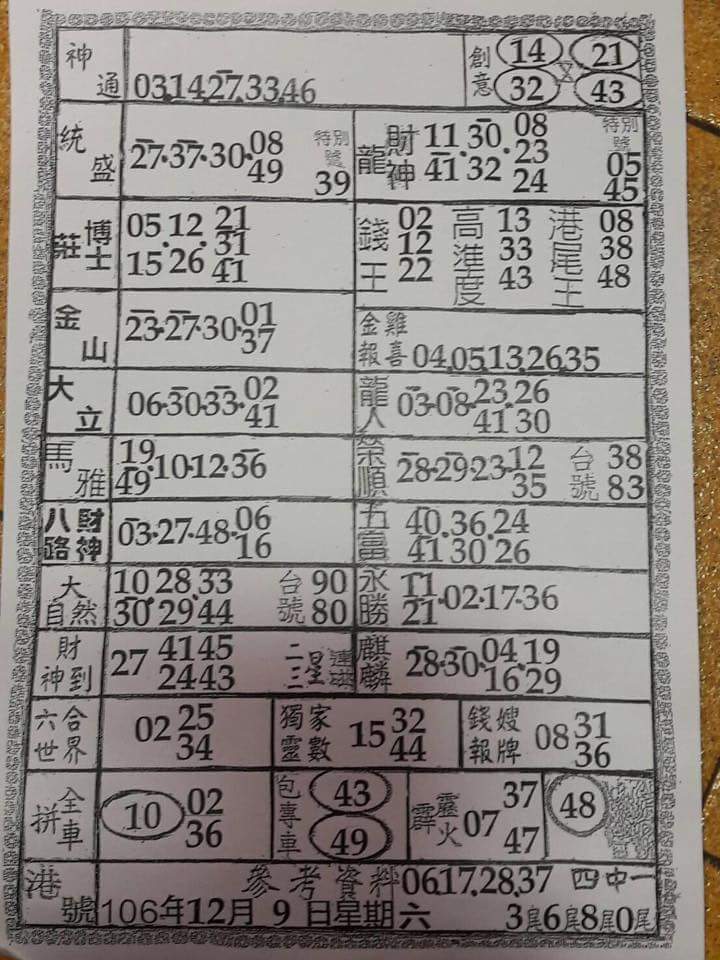 神通 03.14.27.33.46 創意 14 21 32 43
統盛 27.37.30.08 49 特別號 39
龍 財神 11 30 08 41 32 23 24 特別號 05 45
莊 博士 05 12 21 31 15 26 41
錢王 02 12 22 高進度 13 33 43 港尾王 08 38 48
金山 23.27.30.01 37
金雞報喜 04.05.13.26.35
大立 06.30.33.02 41
龍人 03.08.23.26 41 30
馬雅 19 49 10.12.36
榮順 28.29.23.12 35 台號 38 83
八路財神 03.27.48.06 16
五富 40.36.24 41 30 26
大自然 10 28 33 30 29 44 台號 90 80
永勝 11 21 02.17.36
財神到 27 41 45 24 43 二三星
麒麟 28.30.04.19 16 29
六合世界 02 25 34
獨家靈數 15 32 44
錢嫂報牌 08 31 36
全車拼 10 02 36
包專車 43 49
霹靂火 07 37 47
48
港號 參考資料 06.17.28.37 四中一
106年12月9日星期六 3尾6尾8尾0尾